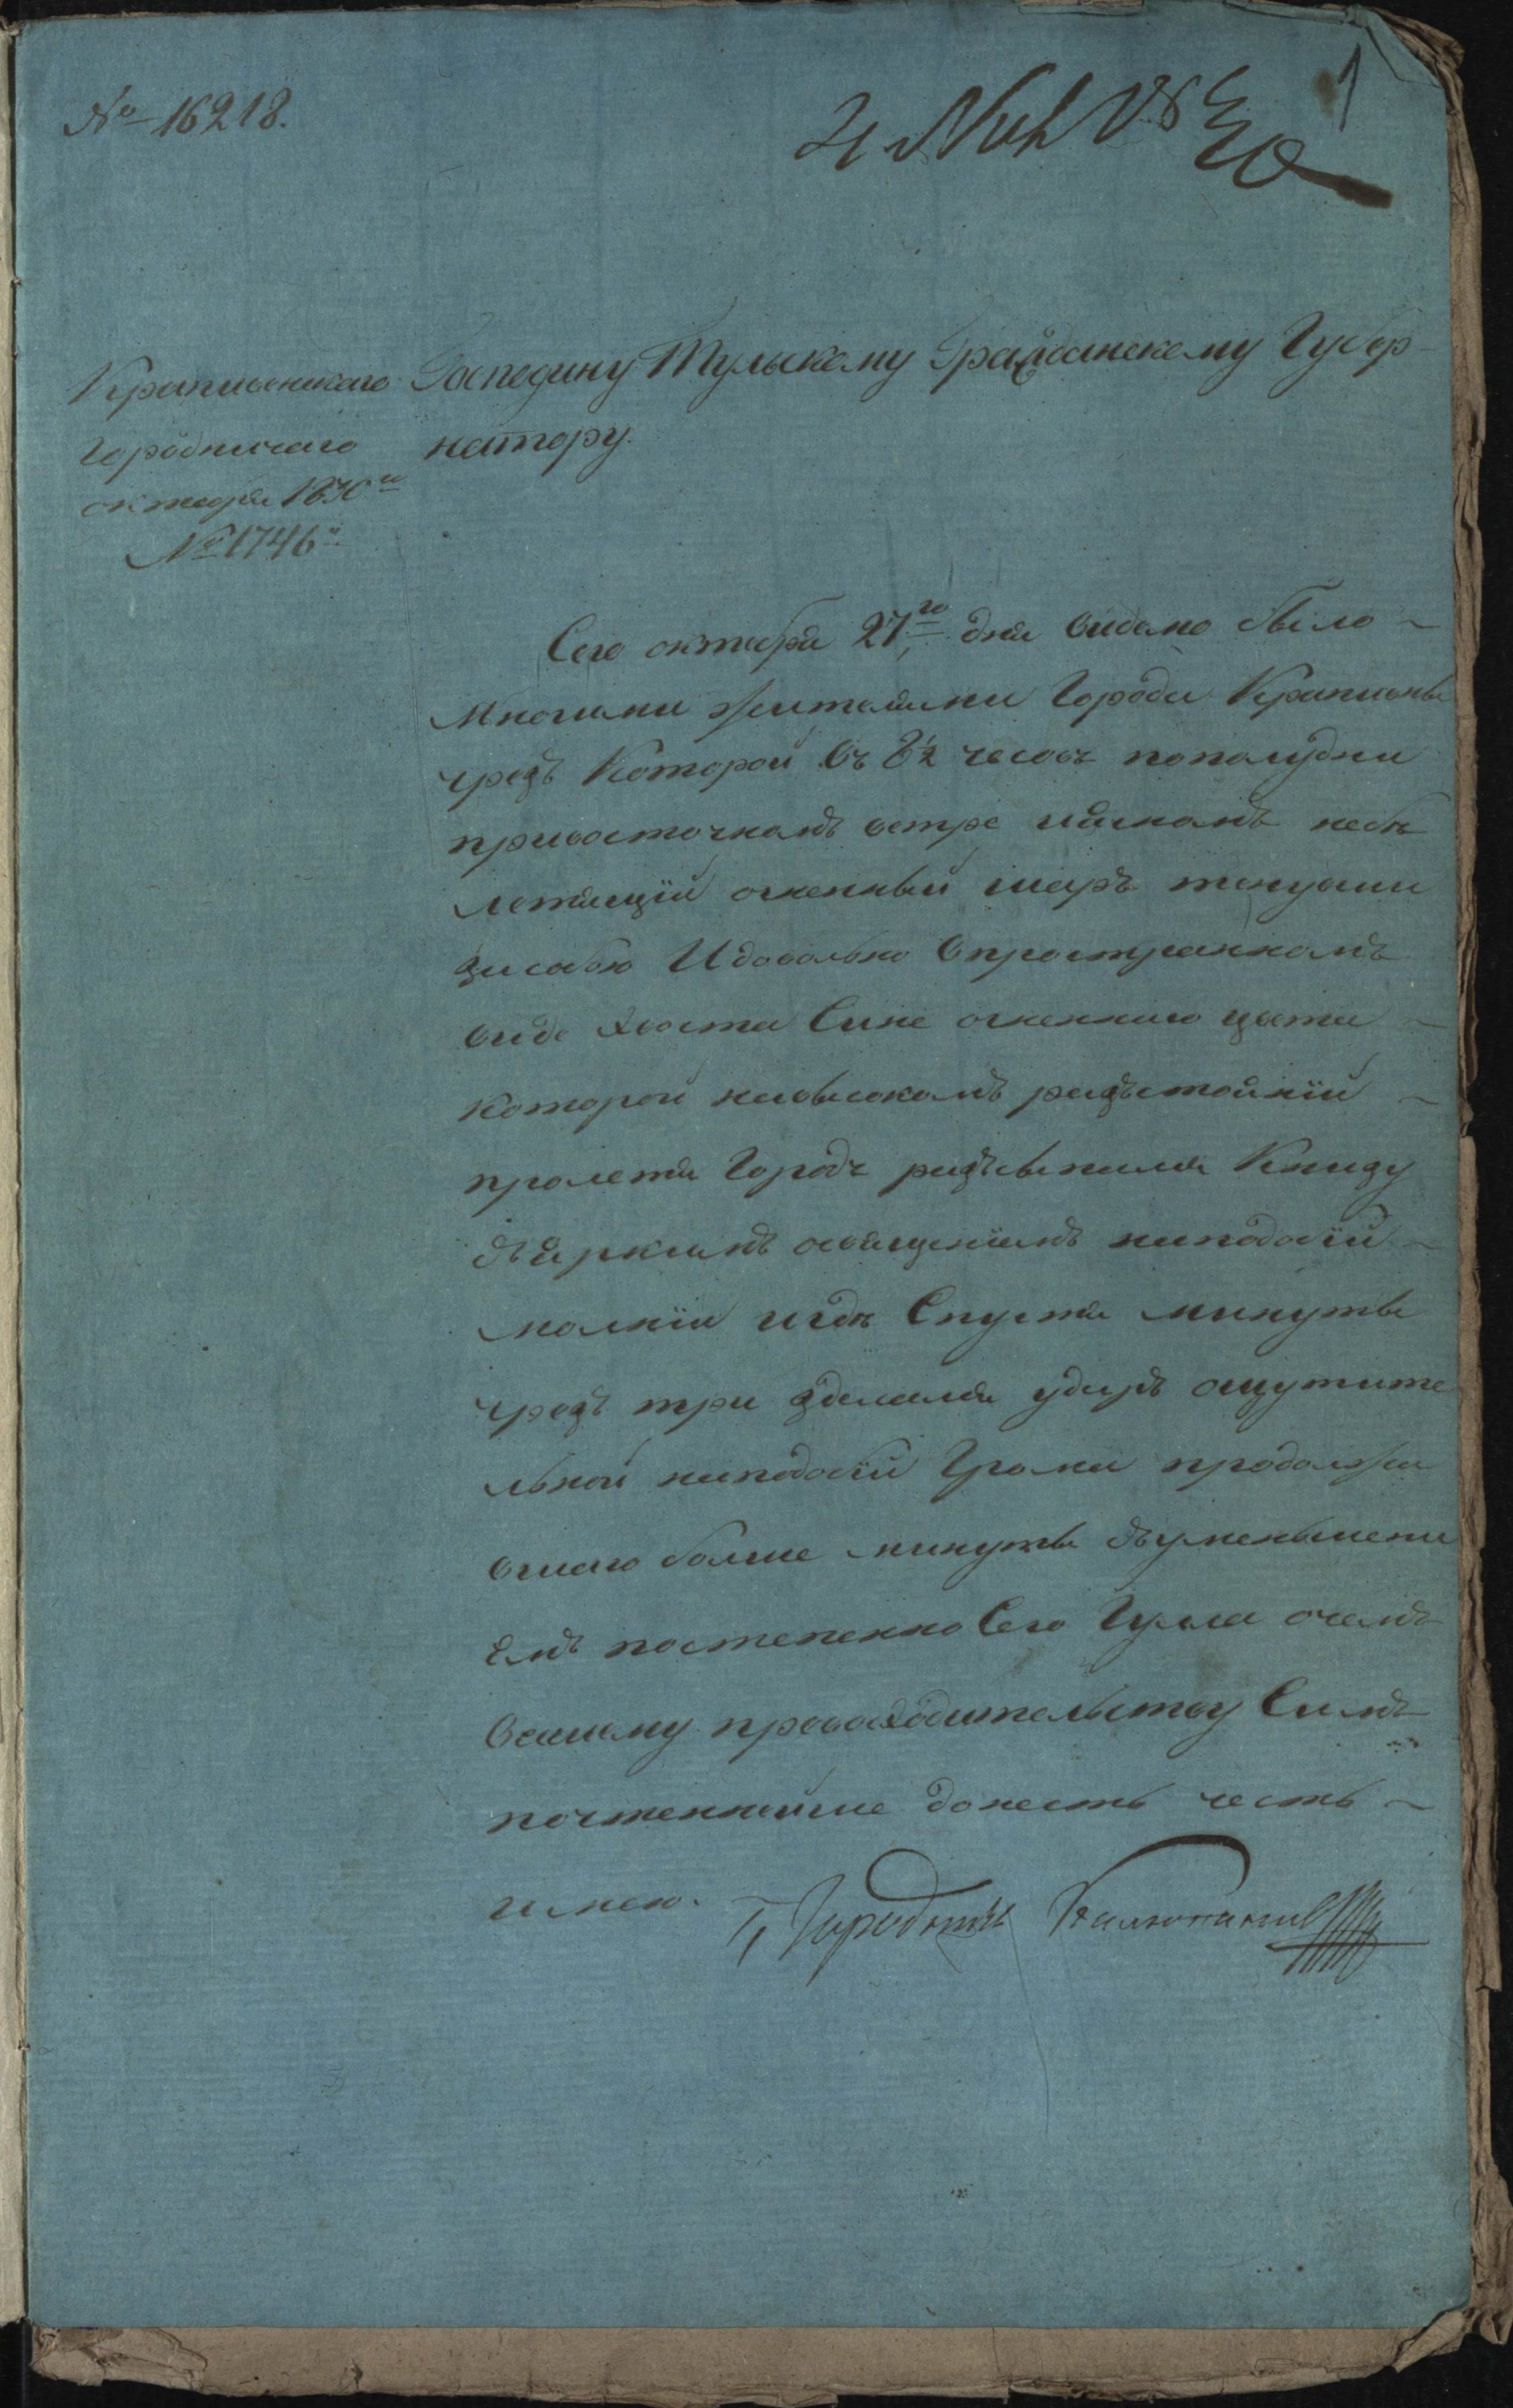 № 16218.
1
Крапивенскаго
Городничаго
октября 1830го
№ 1746й
Господину Тульскому Гражданскому Губер
натору.
Сего октября 27го дня видимо было
многими жителями Города Крапивны
чрезъ которой въ 8½ часовъ пополудни
привосточномъ ветре иясномъ небе
летящiй огненный шаръ тянущи
засобою Идовольно впространномъ
виде хвоста Сине огненнаго цвета
которой навысокомъ разстоянiи
пролетя Городъ разсыпался Книзу
съ яркимъ освещенiемъ наподобiи
молнiи игде Спустя минуты
чрезъ три зделался ударъ ощутите
льной наподобiи Грома продолжа
вшаго более минуты съ уменьшени
емъ постепенно Сего Гула очемъ
Вашему превосходительству Симъ
почтеннейше донесть честь
имею.
Городничiй